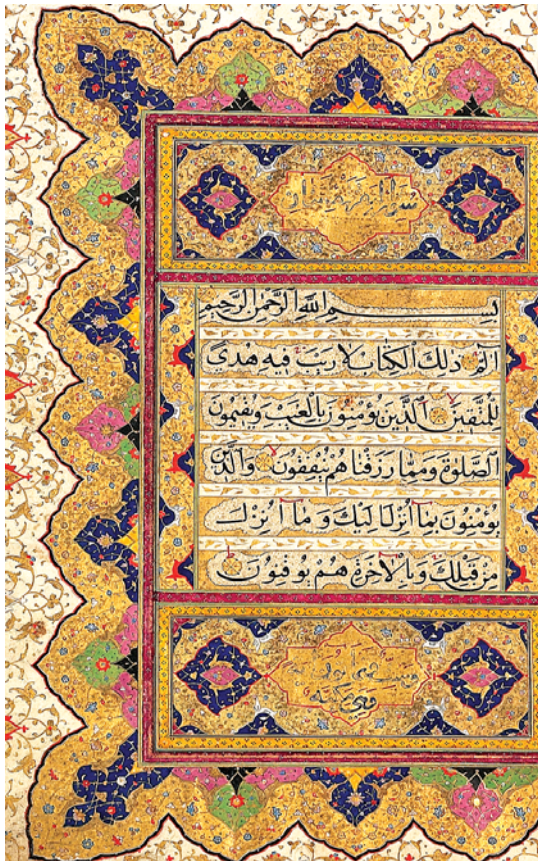 سورة البقرة
بِسْمِ اللهِ الرَّحْمنِ الرَّحِيمِ
الم ذلِكَ الْكِتابُ لا رَيْبَ فِيهِ هُدىً
لِلْمُتَّقِينَ الَّذِينَ يُؤْمِنُونَ بِالْغَيْبِ وَيُقِيمُونَ
الصَّلٰوةَ وَمِمَّا رَزَقْناهُمْ يُنْفِقُونَ وَالَّذِينَ
يُؤْمِنُونَ بِمآ اُنْزِلَ اِلَيْكَ وَمآ اُنْزِلَ
مِنْ قَبْلِكَ وَبِالْاٰخِرَةِ هُمْ يُوقِنُونَ